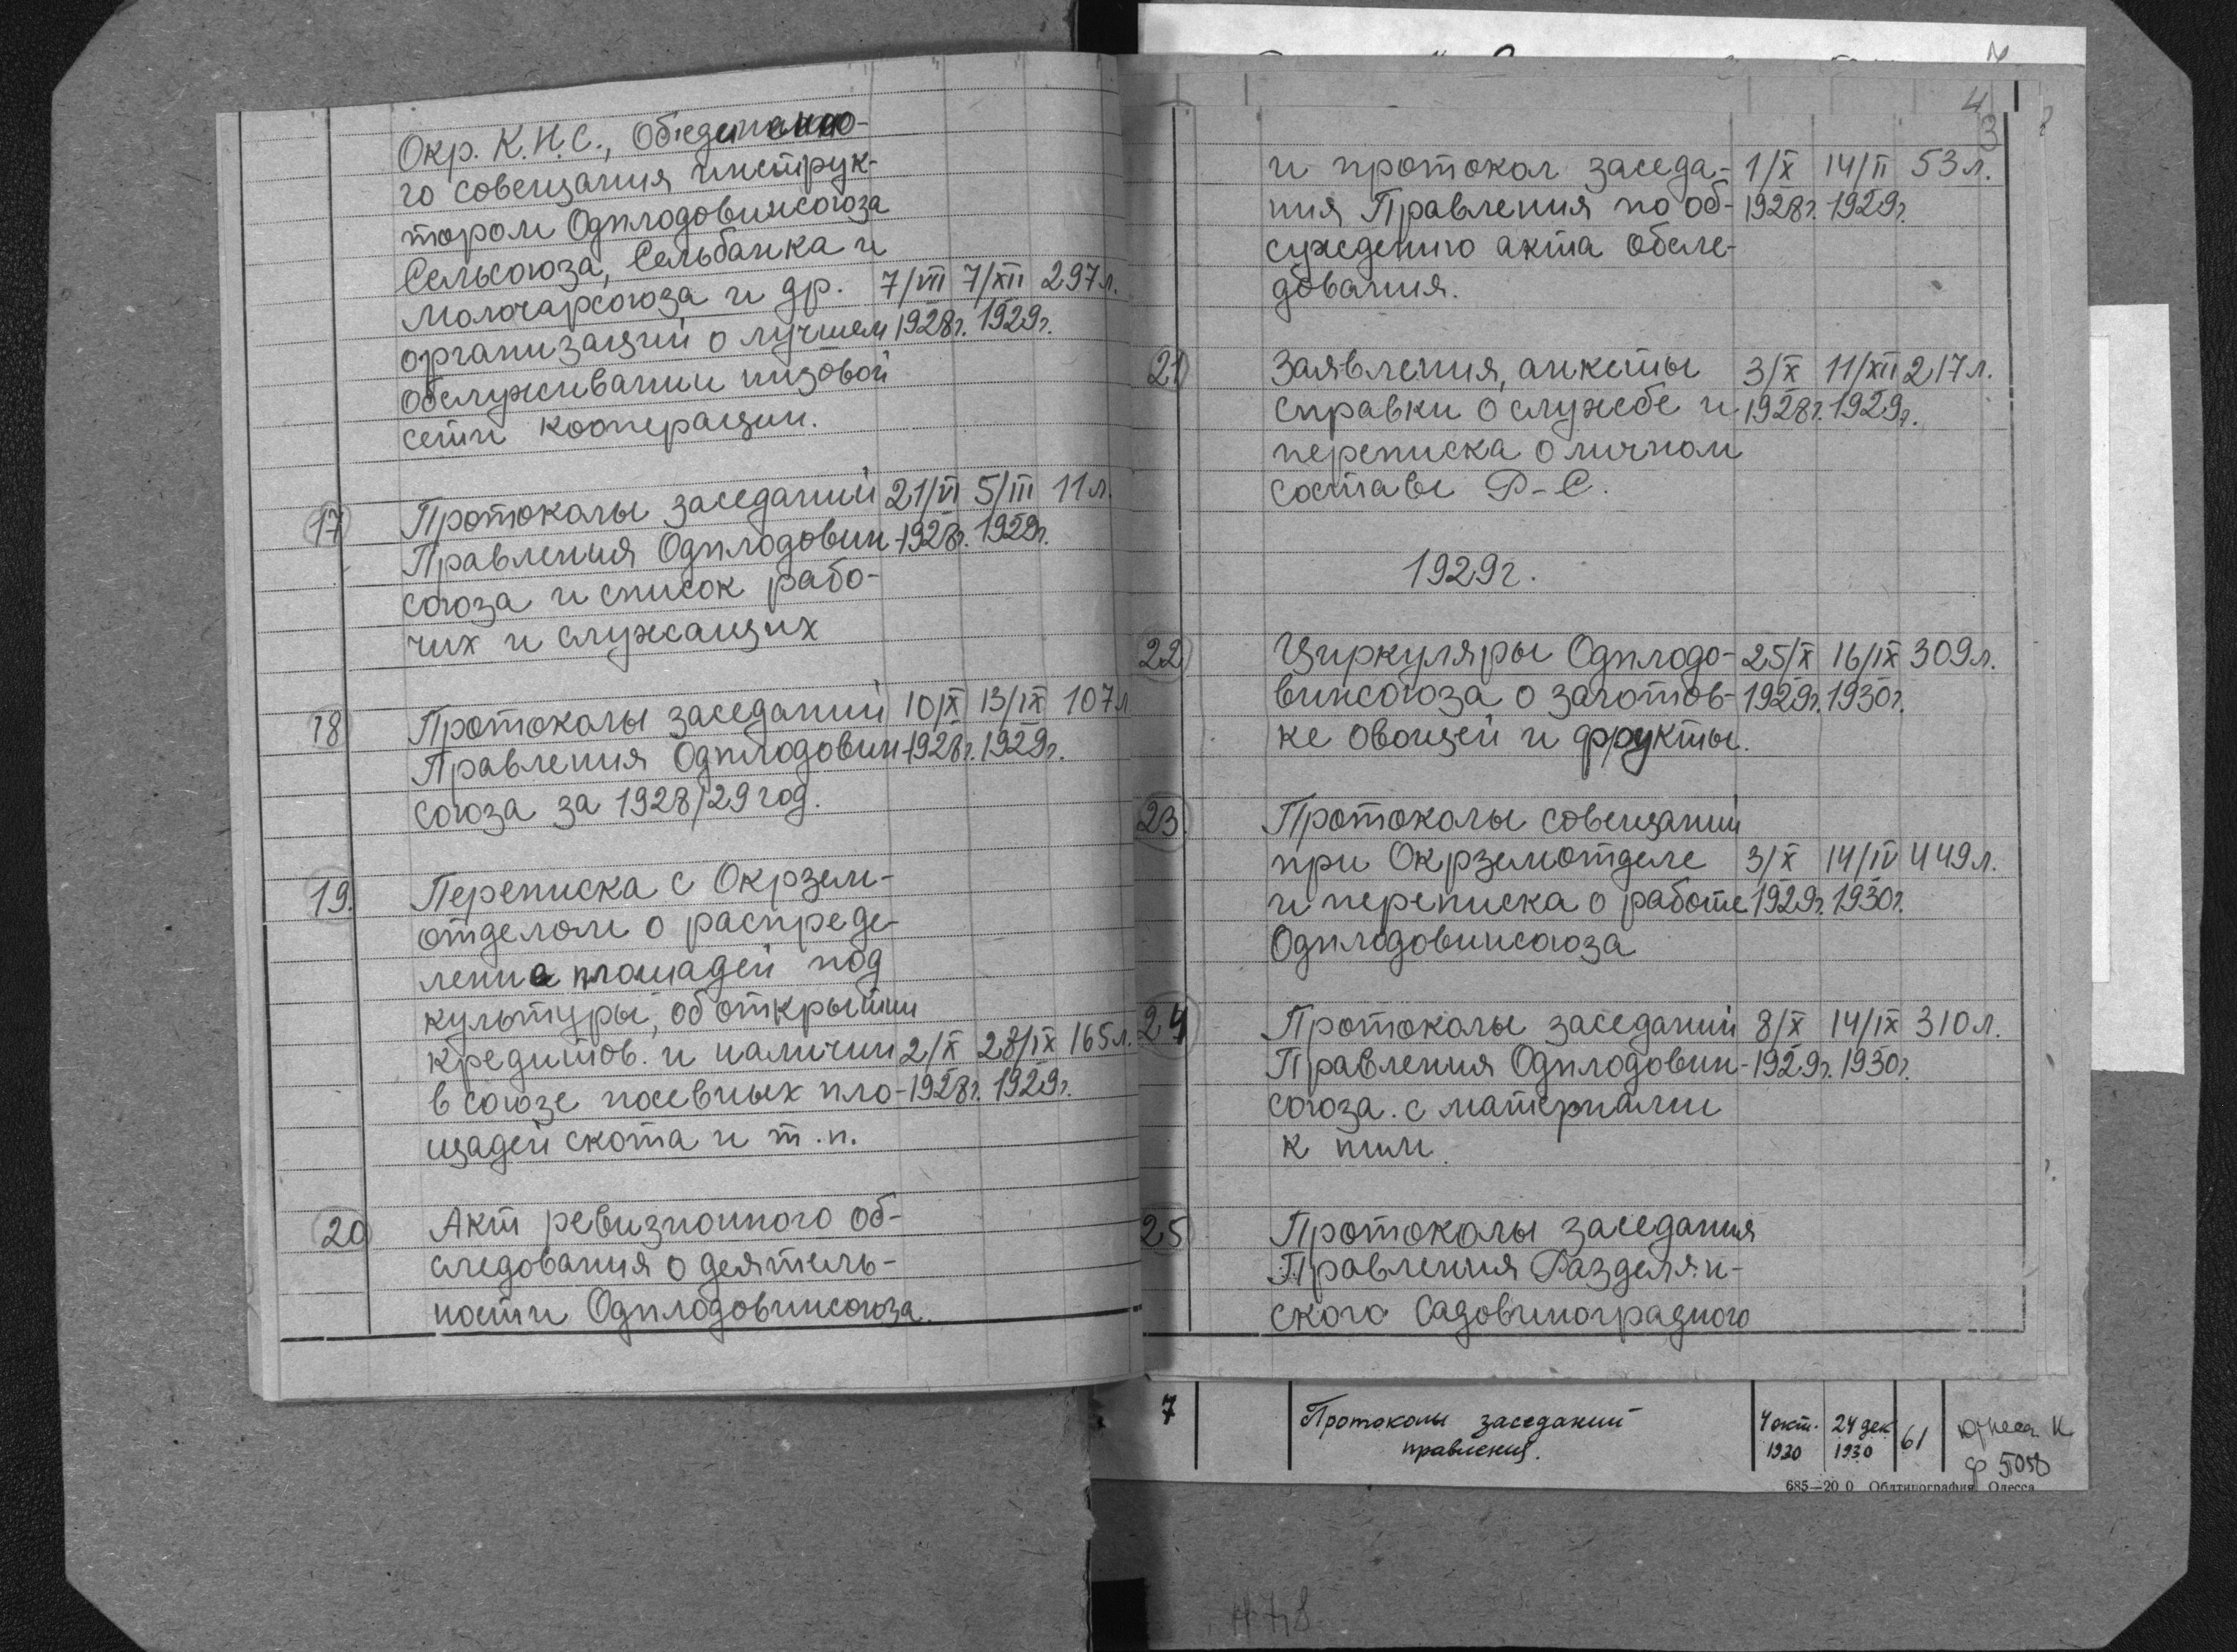 Окр. К.Н.С., Обıединенно-
го совещания инструк-
тором Одплодовинсоюза
Сельсоюза, Сельбанка и
молочарсоюза и др. 7/VII 7/XII 297л.
организаций о лучшем 1928г. 1929г.
обслуживании низовой
сети кооперации.
17 Протоколы заседаний 21/VI 5/III 11л.
Правления Одплодовин- 1928г. 1929г.
союза и список рабо-
чих и служащих
18 Протоколы заседаний 10/X 13/IX 107л
Правления Одплодовин- 1928г. 1929г.
союза за 1928/29 год.
19. Переписка с Окрзем-
отделом о распреде-
лении площадей под
культуры, об открытии
кредитов. и наличии 2/X 28/IX 165л.
в союзе посевных пло- 1928г. 1929г.
щадей скота и т.п.
20 Акт ревизионного об-
следования о деятель-
ности Одплодовинсоюза.
4
3
и протокол заседа- 1/X 14/II 53л.
ния Правления по об- 1928г. 1929г.
суждению акта обсле-
дования.
21 Заявления, анкеты 3/X 11/XII 217л.
справки о службе и 1928г. 1929г.
переписка о личном
составе Р-С.
1929г.
22 Циркуляры Одплодо- 25/X 16/IX 309л.
винсоюза о заготов- 1929г. 1930г.
ке овощей и фрукты.
23 Протоколы совещаний
при Окрземотделе 3/X 14/IV 449л.
и переписка о работе 1929г. 1930г.
Одплодовинсоюза
24 Протоколы заседаний 8/X 14/IX 310л.
Правления Одплодовин- 1929г. 1930г.
союза. с материалми
к ним.
25 Протоколы заседания
Правления Разделян-
ского Садовиноградного
7 Протоколы заседаний 4 окт. 24 дек 61
правления. 1930 1930
ф 5058
685—20 0 Облтипография Одесса